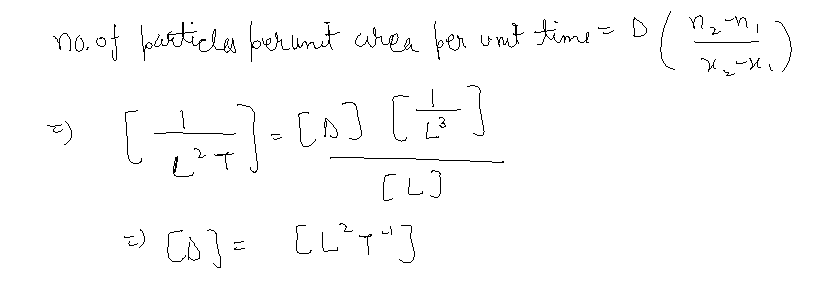 no. of particles per unit area per unit time = D ( n₂-n₁ / x₂-x₁ )
=) [ 1 / L² T ] = [D] [ 1 / L³ ] / [L]
=) [D] = [L² T⁻¹]